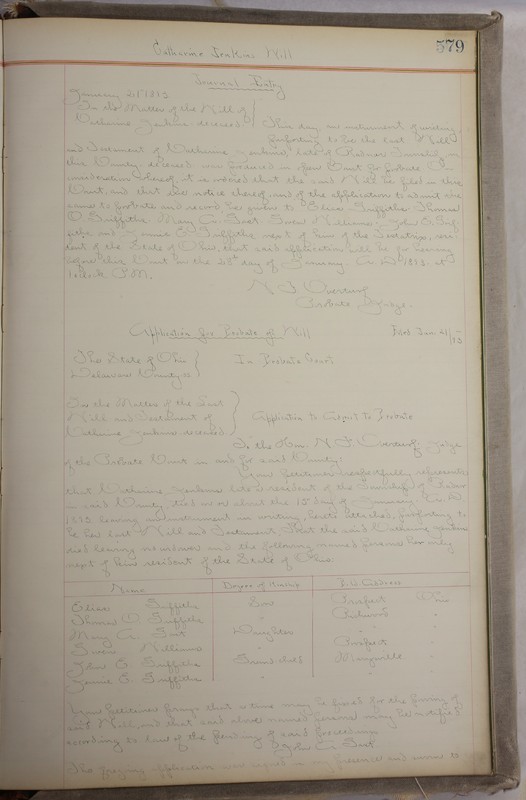 579
Catharine Jenkins Will
Journal Entry
January 21 1913
In the Matter of the Will of
Catharine Jenkins deceased
This day an instrument of writing
purporting to be the last Will
and Testament of Catharine Jenkins, late of Radnor Township in
this County, deceased, was produced in open Court for Probate. On
consideration hereof, it is ordered that the said Will be filed in this
Court, and that due notice thereof, and of the application to admit the
same to probate and record, be given to Elias Griffiths Thomas
D. Griffiths Mary A. Gast Williams, John E. Grif
fiths and Jennie E. Griffiths next of kin of the Testatrix, resi
dent of the State of Ohio, that said application will be for hearing
before this Court on the 23d day of January A. D. 1913 at
o'clock P.M.
N. F. Overturf
Probate Judge.
Application for Probate of Will
Filed Jan 21/13
The State of Ohio
Delaware County ss
In Probate Court
In the Matter of the Last
Will and Testament of
Catharine Jenkins deceased
Application to Admit to Probate
To the Hon. N. F. Overturf, Judge
of the Probate Court in and for said County:
Your petitioner respectfully represents
that Catharine Jenkins late a resident of the Township of Radnor
in said County, died on or about the 15 day of January A. D.
1913 leaving an instrument in writing, hereto attached, purporting to
be her last Will and Testament; that the said Catharine Jenkins
died leaving no widower and the following named persons her only
next of kin resident of the State of Ohio
Name Degree of Kinship P.O. Address
Elias Griffiths Son Prospect Ohio
Thomas D. Griffiths " Radnor "
Mary A. Gast Daughter " "
Williams " Prospect "
John E. Griffiths Grandchild Marysville "
Jennie E. Griffiths " " "
Your petitioner prays that a time may be fixed for the proving of
said Will and that said above named persons may be notified
according to law of the pendency of said proceedings
John C. Gast
The foregoing application was signed in my presence and sworn to